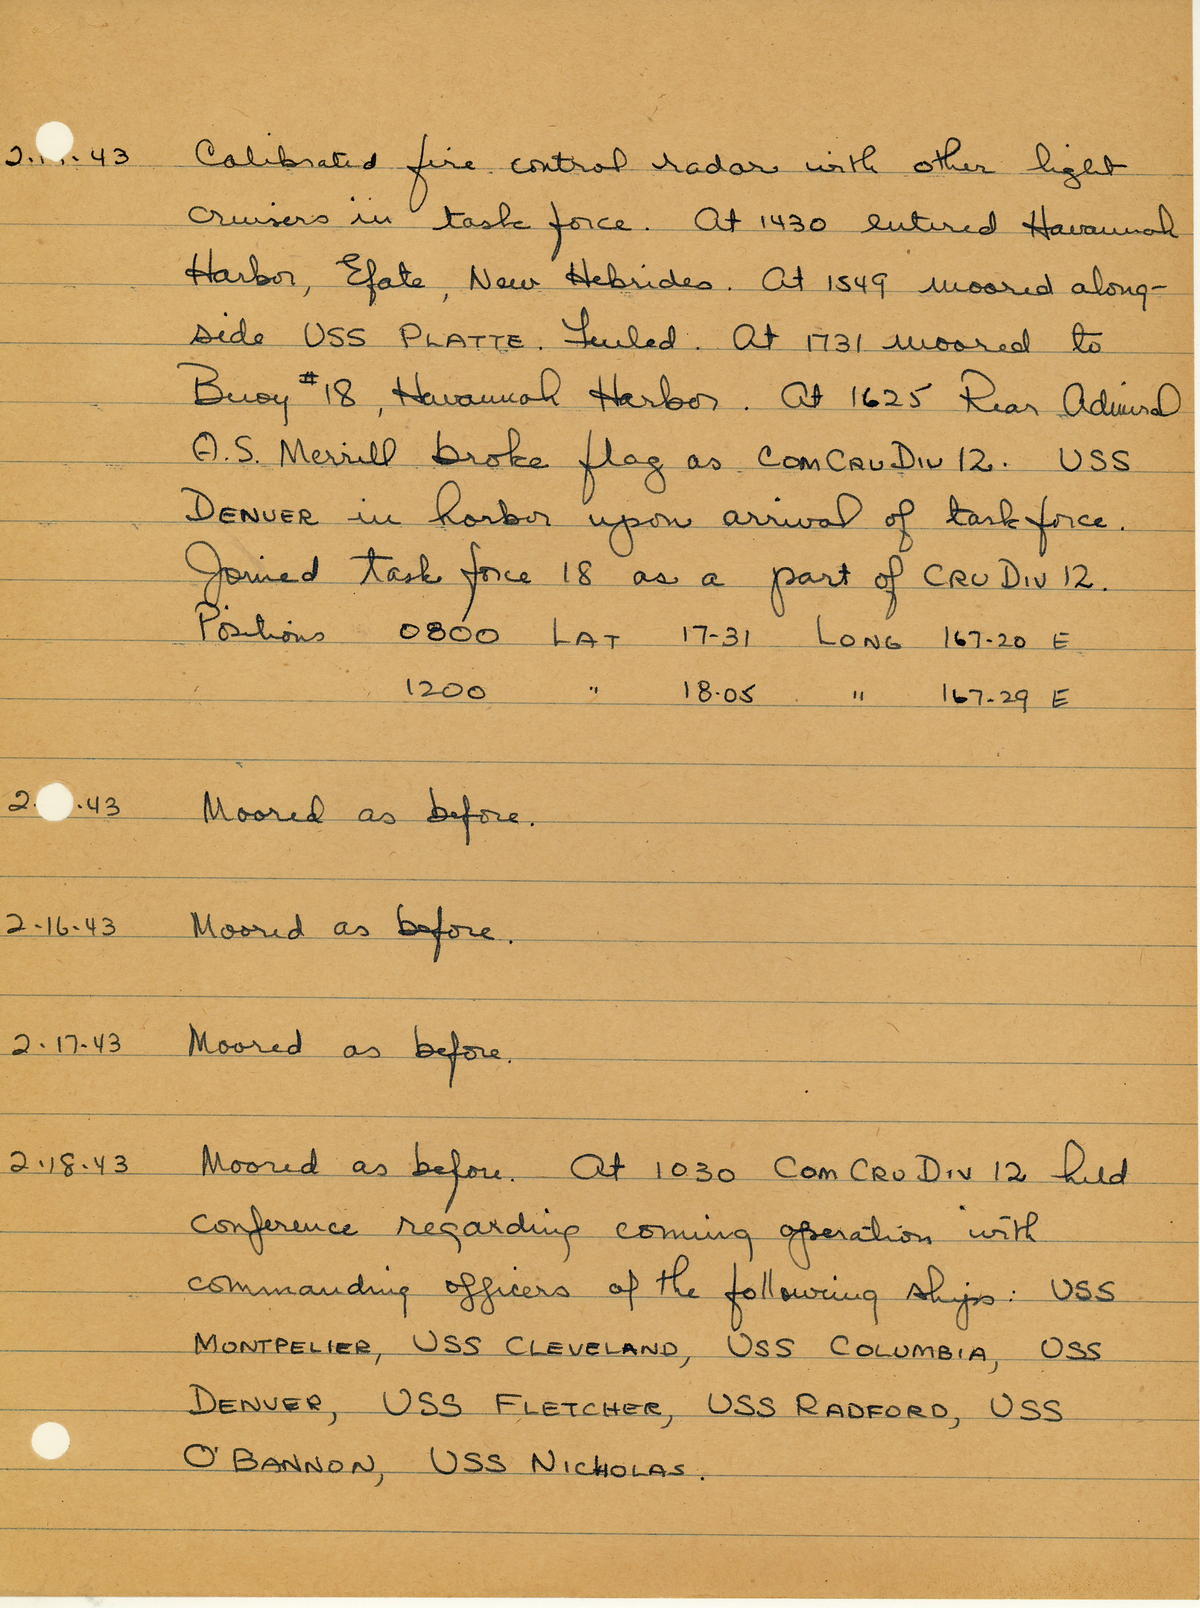 2.1 .43 Calibrated fire control radar with other light
cruisers in task force. At 1430 entered Havannah
Harbor, Efate, New Hebrides. At 1549 moored along-
side USS PLATTE. Fueled. At 1731 moored to
Buoy #18, Havannah Harbor. At 1625 Rear Admiral
A.S. Merrill broke flag as COMCRUDIV 12. USS
DENVER in harbor upon arrival of task force.
Joined task force 18 as a part of CRUDIV 12.
Positions 0800 LAT 17-31 LONG 167-20 E
1200 " 18-05 " 167-29 E
2. .43 Moored as before.
2-16-43 Moored as before.
2-17-43 Moored as before.
2-18-43 Moored as before. At 1030 COMCRUDIV 12 held
conference regarding coming operation with
commanding officers of the following ships: USS
MONTPELIER, USS CLEVELAND, USS COLUMBIA, USS
DENVER, USS FLETCHER, USS RADFORD, USS
O'BANNON, USS NICHOLAS.